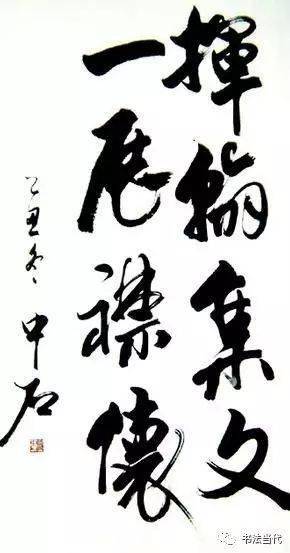 揮翰集文
一展襟懷
乙丑冬 中石
书法当代